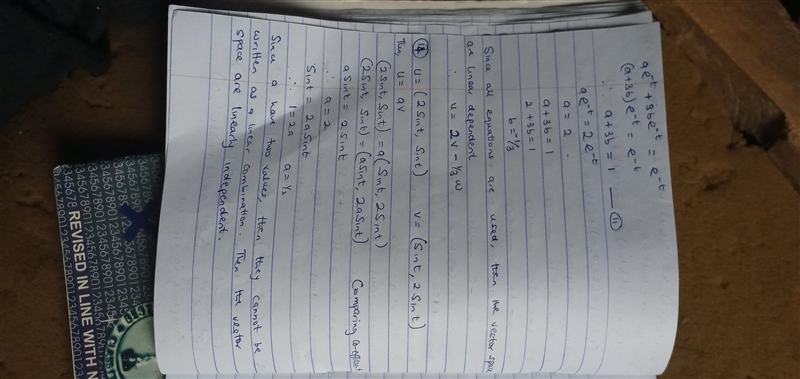 ae⁻ᵗ + 3be⁻ᵗ = e⁻ᵗ
(a+3b)e⁻ᵗ = e⁻ᵗ
∴ a+3b = 1 — (ii)
ae⁻ᵗ = 2e⁻ᵗ
a = 2
a+3b = 1
2 + 3b = 1
b = -1/3
Since all equations are used, then the vector space
are linear dependent
∴ u = 2v - 1/3 w
u = (2Sint, Sint) v = (Sint, 2Sint)
Then, u = av
(2Sint, Sint) = a(Sint, 2Sint)
(2Sint, Sint) = (aSint, 2aSint) Comparing
aSint = 2Sint
∴ a = 2
Sint = 2aSint
∴ 1 = 2a a = 1/2
Since a have two values, then they cannot be
written as a linear combination. Then the vector
space are linearly independent.
REVISED IN LINE WITH